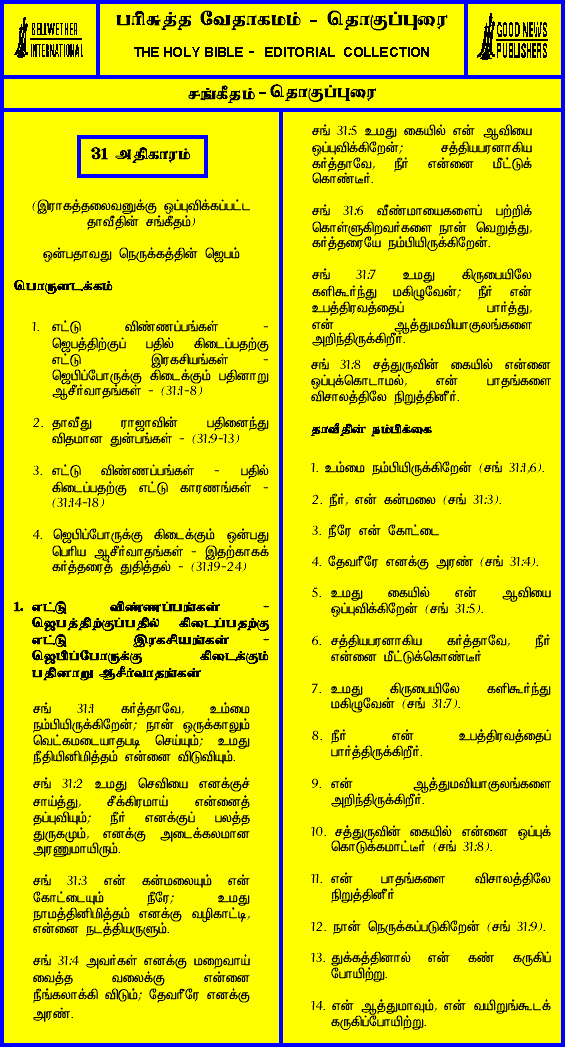 BELLWETHER
INTERNATIONAL
பரிசுத்த வேதாகமம் - தொகுப்புரை
THE HOLY BIBLE - EDITORIAL COLLECTION
GOOD NEWS
PUBLISHERS
சங்கீதம் - தொகுப்புரை
31 அதிகாரம்
(இராகத்தலைவனுக்கு ஒப்புவிக்கப்பட்ட
தாவீதின் சங்கீதம்)
ஒன்பதாவது நெருக்கத்தின் ஜெபம்
பொருளடக்கம்
1. எட்டு விண்ணப்பங்கள் -
ஜெபத்திற்குப் பதில் கிடைப்பதற்கு
எட்டு இரகசியங்கள் -
ஜெபிப்போருக்கு கிடைக்கும் பதினாறு
ஆசீர்வாதங்கள் - (31:1-8)
2. தாவீது ராஜாவின் பதினைந்து
விதமான துன்பங்கள் - (31:9-13)
3. எட்டு விண்ணப்பங்கள் - பதில்
கிடைப்பதற்கு எட்டு காரணங்கள் -
(31:14-18)
4. ஜெபிப்போருக்கு கிடைக்கும் ஒன்பது
பெரிய ஆசீர்வாதங்கள் - இதற்காகக்
கர்த்தரைத் துதித்தல் - (31:19-24)
1. எட்டு விண்ணப்பங்கள் -
ஜெபத்திற்குப்பதில் கிடைப்பதற்கு
எட்டு இரகசியங்கள் -
ஜெபிப்போருக்கு கிடைக்கும்
பதினாறு ஆசீர்வாதங்கள்
சங் 31:1 கர்த்தாவே, உம்மை
நம்பியிருக்கிறேன்; நான் ஒருக்காலும்
வெட்கமடையாதபடி செய்யும்; உமது
நீதியினிமித்தம் என்னை விடுவியும்.
சங் 31:2 உமது செவியை எனக்குச்
சாய்த்து, சீக்கிரமாய் என்னைத்
தப்புவியும்; நீர் எனக்குப் பலத்த
துருகமும், எனக்கு அடைக்கலமான
அரணுமாயிரும்.
சங் 31:3 என் கன்மலையும் என்
கோட்டையும் நீரே; உமது
நாமத்தினிமித்தம் எனக்கு வழிகாட்டி,
என்னை நடத்தியருளும்.
சங் 31:4 அவர்கள் எனக்கு மறைவாய்
வைத்த வலைக்கு என்னை
நீங்கலாக்கி விடும்; தேவரீரே எனக்கு
அரண்.
சங் 31:5 உமது கையில் என் ஆவியை
ஒப்புவிக்கிறேன்; சத்தியபரனாகிய
கர்த்தாவே, நீர் என்னை மீட்டுக்
கொண்டீர்.
சங் 31:6 வீண்மாயைகளைப் பற்றிக்
கொள்ளுகிறவர்களை நான் வெறுத்து,
கர்த்தரையே நம்பியிருக்கிறேன்.
சங் 31:7 உமது கிருபையிலே
களிகூர்ந்து மகிழுவேன்; நீர் என்
உபத்திரவத்தைப் பார்த்து,
என் ஆத்துமவியாகுலங்களை
அறிந்திருக்கிறீர்.
சங் 31:8 சத்துருவின் கையில் என்னை
ஒப்புக்கொடாமல், என் பாதங்களை
விசாலத்திலே நிறுத்தினீர்.
தாவீதின் நம்பிக்கை
1. உம்மை நம்பியிருக்கிறேன் (சங் 31:1,6).
2. நீர், என் கன்மலை (சங் 31:3).
3. நீரே என் கோட்டை
4. தேவரீரே எனக்கு அரண் (சங் 31:4).
5. உமது கையில் என் ஆவியை
ஒப்புவிக்கிறேன் (சங் 31:5).
6. சத்தியபரனாகிய கர்த்தாவே, நீர்
என்னை மீட்டுக்கொண்டீர்
7. உமது கிருபையிலே களிகூர்ந்து
மகிழுவேன் (சங் 31:7).
8. நீர் என் உபத்திரவத்தைப்
பார்த்திருக்கிறீர்.
9. என் ஆத்துமவியாகுலங்களை
அறிந்திருக்கிறீர்.
10. சத்துருவின் கையில் என்னை ஒப்புக்
கொடுக்கமாட்டீர் (சங் 31:8).
11. என் பாதங்களை விசாலத்திலே
நிறுத்தினீர்
12. நான் நெருக்கப்படுகிறேன் (சங் 31:9).
13. துக்கத்தினால் என் கண் கருகிப்
போயிற்று.
14. என் ஆத்துமாவும், என் வயிறுங்கூடக்
கருகிப்போயிற்று.